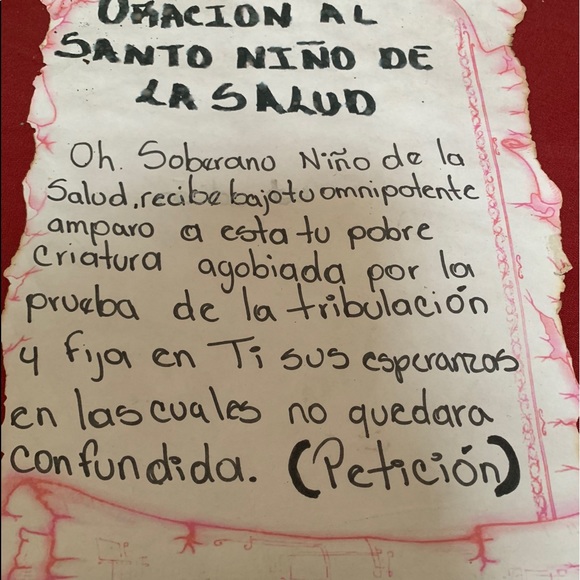 ORACION AL
SANTO NIÑO DE
LA SALUD
Oh. Soberano Niño de la
Salud, recibe bajo tu omnipotente
amparo a esta tu pobre
criatura agobiada por la
prueba de la tribulación
y fija en Ti sus esperanzas
en las cuales no quedara
confundida. (Petición)